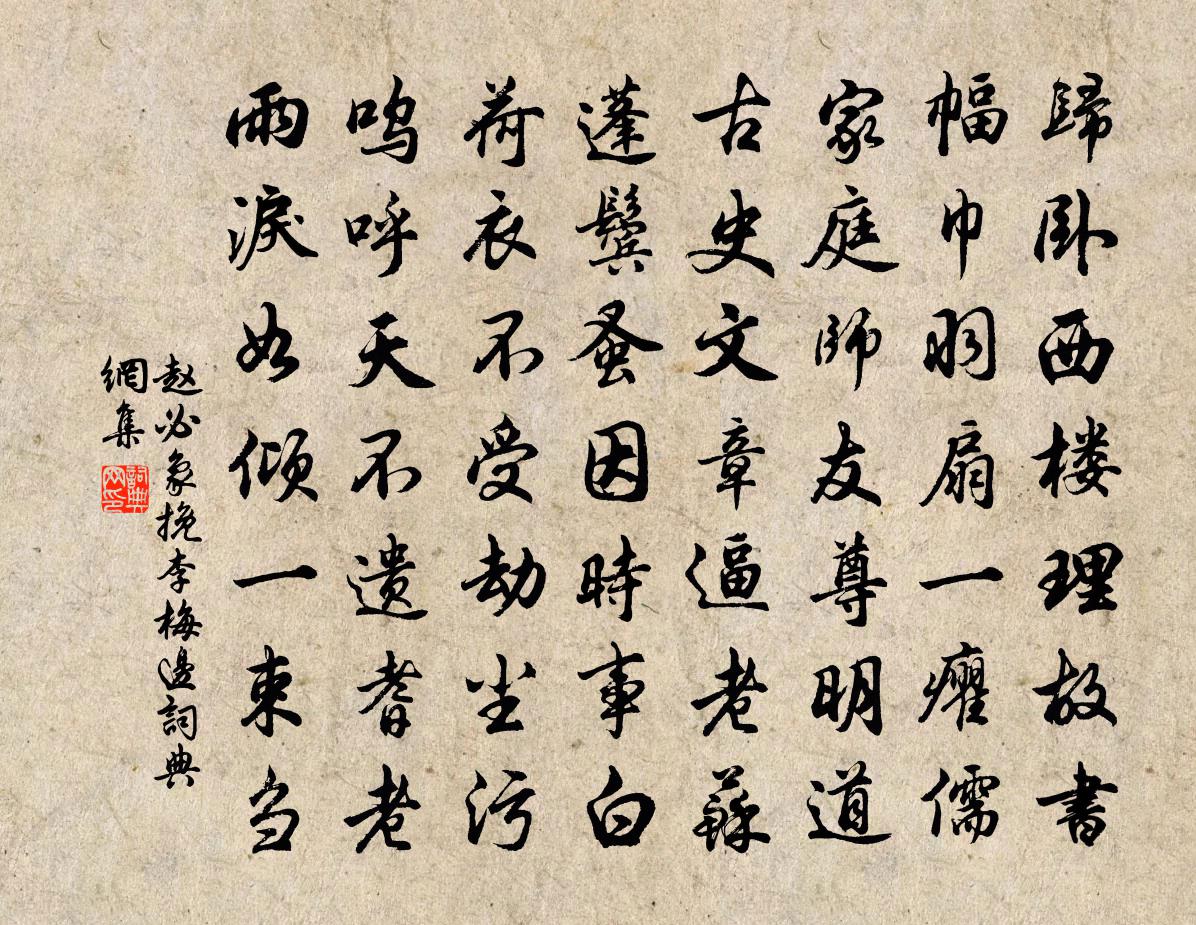 歸卧西楼理故書
幅巾羽扇一癯儒
家庭師友尊明道
古史文章逼老蘇
蓬鬢蚤因時事白
荷衣不受劫尘污
鸣呼天不遗耆老
雨淚如傾一束刍
赵必象挽李梅邊詞典
網集
詞典网印